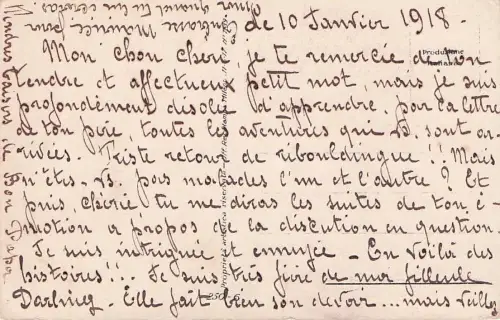 de 10 Janvier 1918.
Mon chou chéri, je te remercie de ton
tendre et affectueux petit mot, mais je suis
profondément désolée d'apprendre, par ta lettre
de ton père, toutes les aventures qui vs. sont ar-
rivées. Triste retour de ribouldingue!! Mais
n'êtes-vs. pas malades l'un et l'autre? Et
puis, chérie tu me diras les suites de ton é-
motion à propos de la discution en question.
Je suis intriguée et ennuyée - En voilà des
histoires!!.. Je suis très fière de ma filleule
Darling. Elle fait bien son devoir... mais veilles
Tendres baisers de Bon Papa
Produzione
Italiana